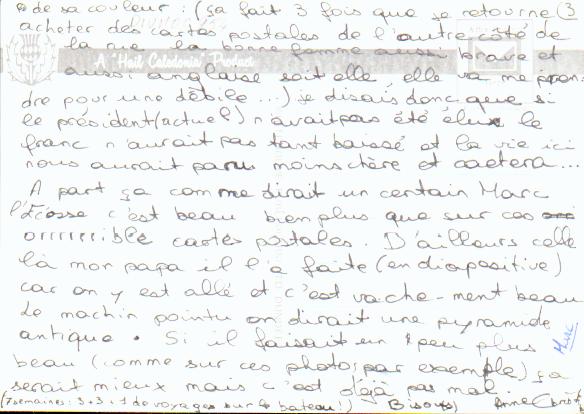 de sa couleur : (ça fait 3 fois que je retourne (3
acheter des cartes postales de l'autre côté de
la rue la bonne femme aussi brave et
A "Hail Caledonia" Product
aussi anglaise soit elle elle va me pren
dre pour une débile...) je disais donc que si
le président (actuel) n'avait pas été élu le
franc n'aurait pas tant baissé et la vie ici
nous aurait paru moins chère et caetera...
A part ça comme dirait un certain Marc
l'Écosse c'est beau bien plus que sur ces
orrrrrrible cartés postales. D'ailleurs celle
là mon papa il l'a faite (en diapositive)
car on y est allé et c'est vache-ment beau
Le machin pointu on dirait une pyramide
antique. Si il faisait un peu plus
beau (comme sur ces photos par exemple) ça
serait mieux mais c'est déjà pas mal
Marc
(7 semaines : 3+3+1 de voyages sur le bateau!) Bisous Anne